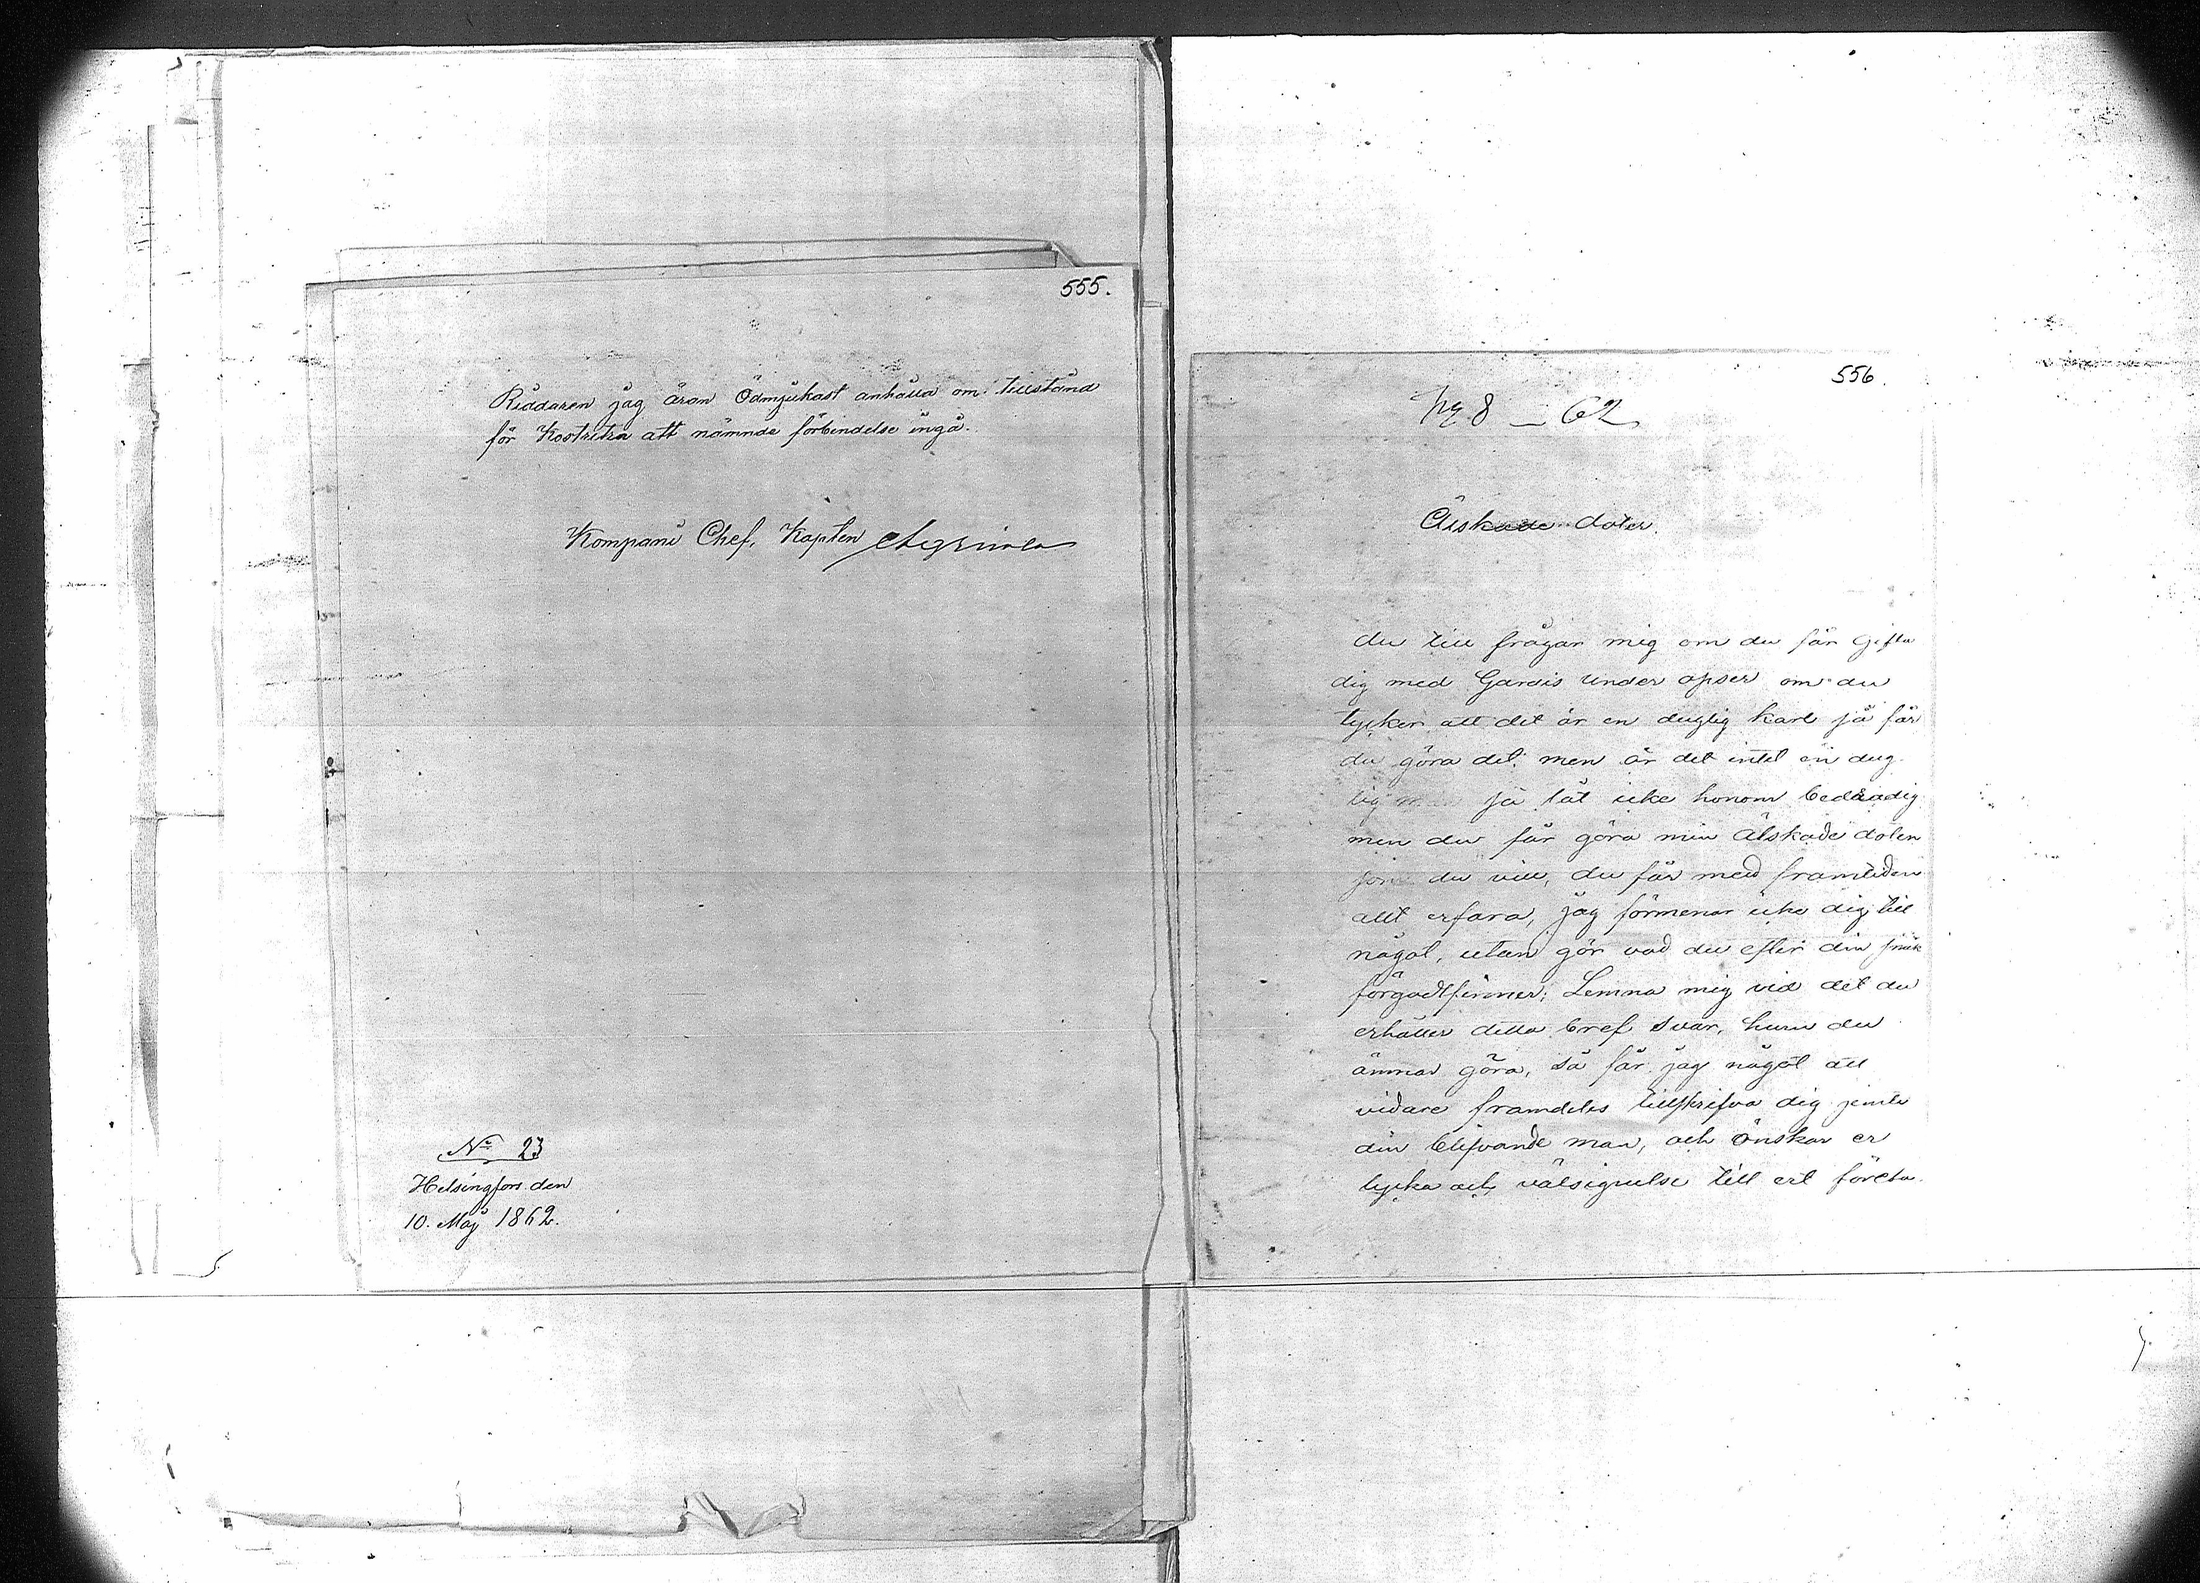 555.
Riddaren jag äran Ödmjukast anhålla om tillstånd
för Kostritzin att nämnde förbindelse ingå.
Kompani Chef, Kapten
No 23
Helsingfors den
10. Maj 1862.
556.
8 — 62
Älskade doter.
du till frågar mig om du får Gifta
dig med Gardis under opser om du
tycker att det är en duglig karl så får
du göra det. men är det intet en dug
lig så låt icke honom bedåradig
men du får göra min Älskade doter
som du vill, du får med framtiden
allt erfara, jag förmenar icke dig till
något, utan gör vad du efter din
förgodtfinner; Lemna mig vid det du
erhåller detta bref svar, huru du
ämnar göra, så får jag något att
vidare framdeles tillskrifva dig jemte
din blifvande man, och önskar er
lycka och välsignelse till ert företa